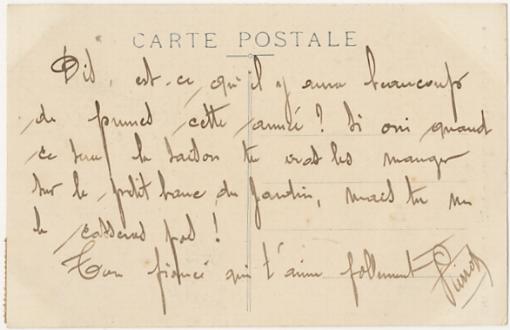 CARTE POSTALE
Dis, est-ce qu'il y aura beaucoup
de prunes cette année ? Si oui quand
ce sera la saison tu iras les manger
sur le petit banc du jardin, mais tu ne
le casseras pas !
Ton fiancé qui t'aime follement